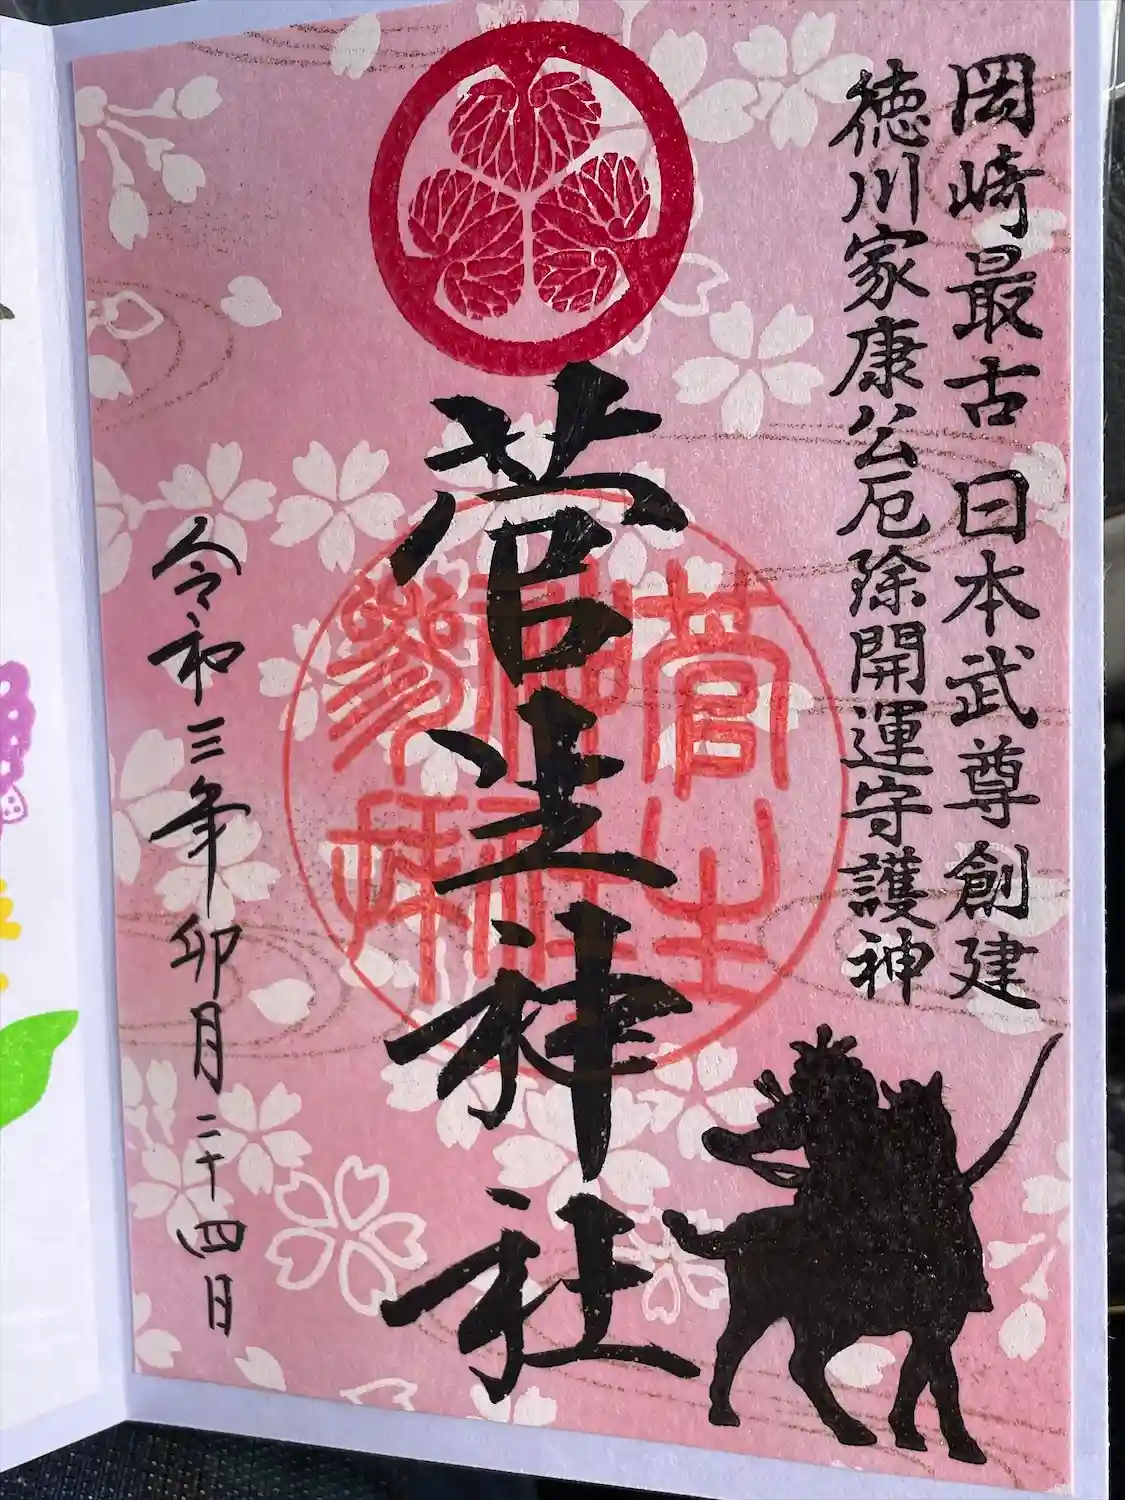 岡崎最古 日本武尊創建
徳川家康公厄除開運守護神
菅生神社
菅生
神社
参拝
令和三年卯月二十四日